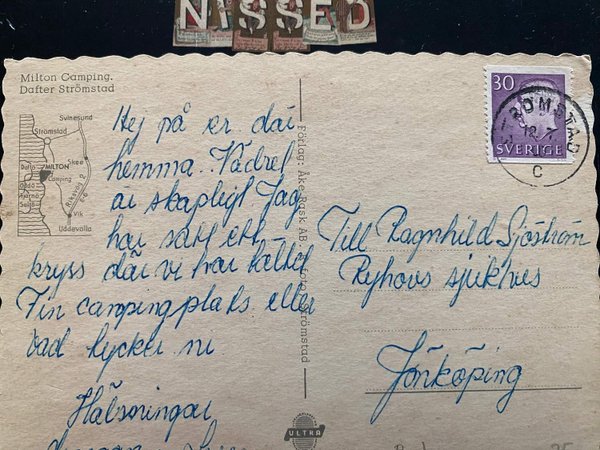 NISSED
Milton Camping.
Dafter Strömstad
Svinesund
Strömstad
Skee
MILTON
Camping
Riksväg 2
Vik
Uddevalla
Hej på er där
hemma. Vädret
är skapligt Jag
har satt ett
kryss där vi har tältet
Fin campingplats eller
vad tycker ni
Hälsningar
Förlag: Åke Rask AB. Strömstad
ULTRA
30
SVERIGE
STRÖMSTAD
12. 7.
C
Till Ragnhild Sjöström
Ryhovs sjukhus
Jönköping